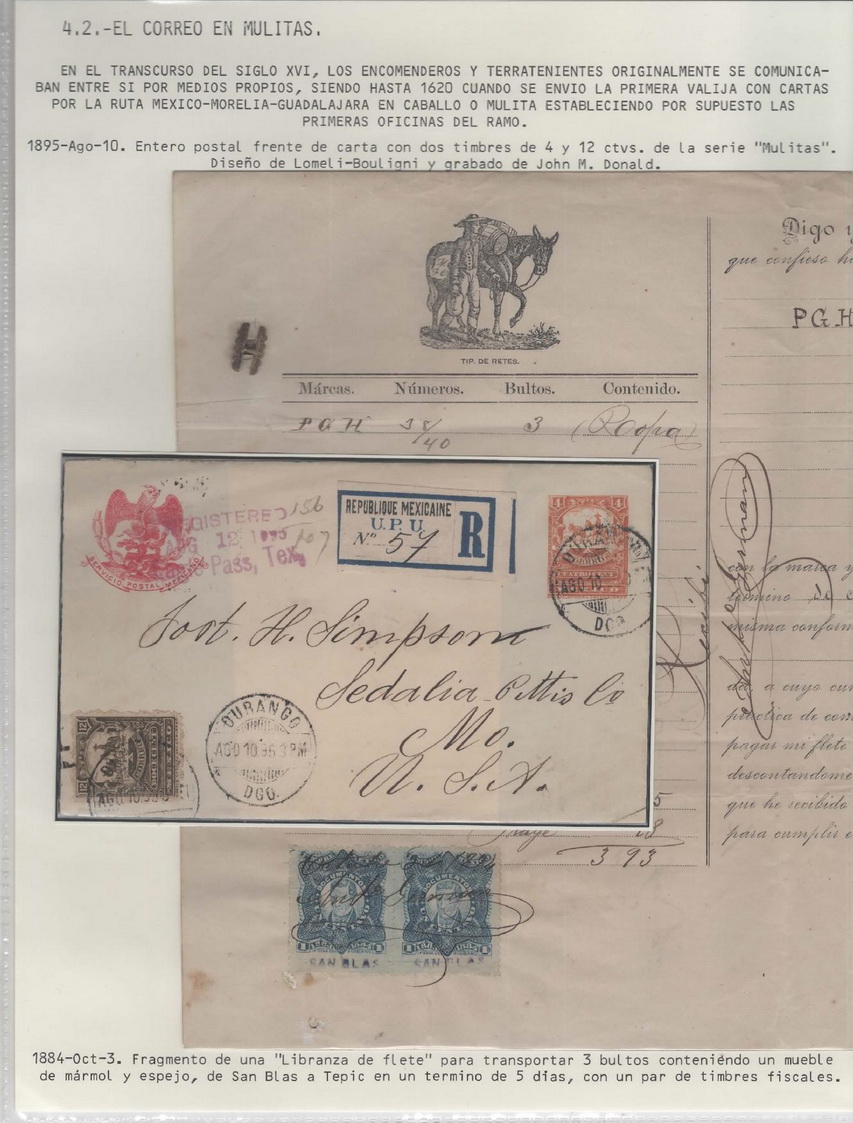 4.2.-EL CORREO EN MULITAS.
EN EL TRANSCURSO DEL SIGLO XVI, LOS ENCOMENDEROS Y TERRATENIENTES ORIGINALMENTE SE COMUNICA-
BAN ENTRE SI POR MEDIOS PROPIOS, SIENDO HASTA 1620 CUANDO SE ENVIO LA PRIMERA VALIJA CON CARTAS
POR LA RUTA MEXICO-MORELIA-GUADALAJARA EN CABALLO O MULITA ESTABLECIENDO POR SUPUESTO LAS
PRIMERAS OFICINAS DEL RAMO.
1895-Ago-10. Entero postal frente de carta con dos timbres de 4 y 12 ctvs. de la serie "Mulitas".
Diseño de Lomeli-Bouligni y grabado de John M. Donald.
Digo y
que confieso h
PGH
TIP. DE RETES.
Márcas. Números. Bultos. Contenido.
PGH 38/40 3 (Ropa)
SERVICIO POSTAL MEXICANO
GISTERED
12 1895
Pass, Tex.
156
107
REPUBLIQUE MEXICAINE
U.P.U.
Nº 57
R
4
DURANGO
AGO 10
DGO.
Post. H. Simpson
Sedalia Pettis Co
Mo.
U.S.A.
12
AGO 10
DURANGO
AGO 10 95 3 PM
DGO.
Recibí
con la marca y
término de
misma conform
da, a cuyo cum
práctica de com
pagar mi flete
descontandome
que he recibido
para cumplir
5
8
3 93
DOCUMENTOS
DOCUMENTOS
SAN BLAS SAN BLAS
1884-Oct-3. Fragmento de una "Libranza de flete" para transportar 3 bultos conteniéndo un mueble
de mármol y espejo, de San Blas a Tepic en un termino de 5 días, con un par de timbres fiscales.